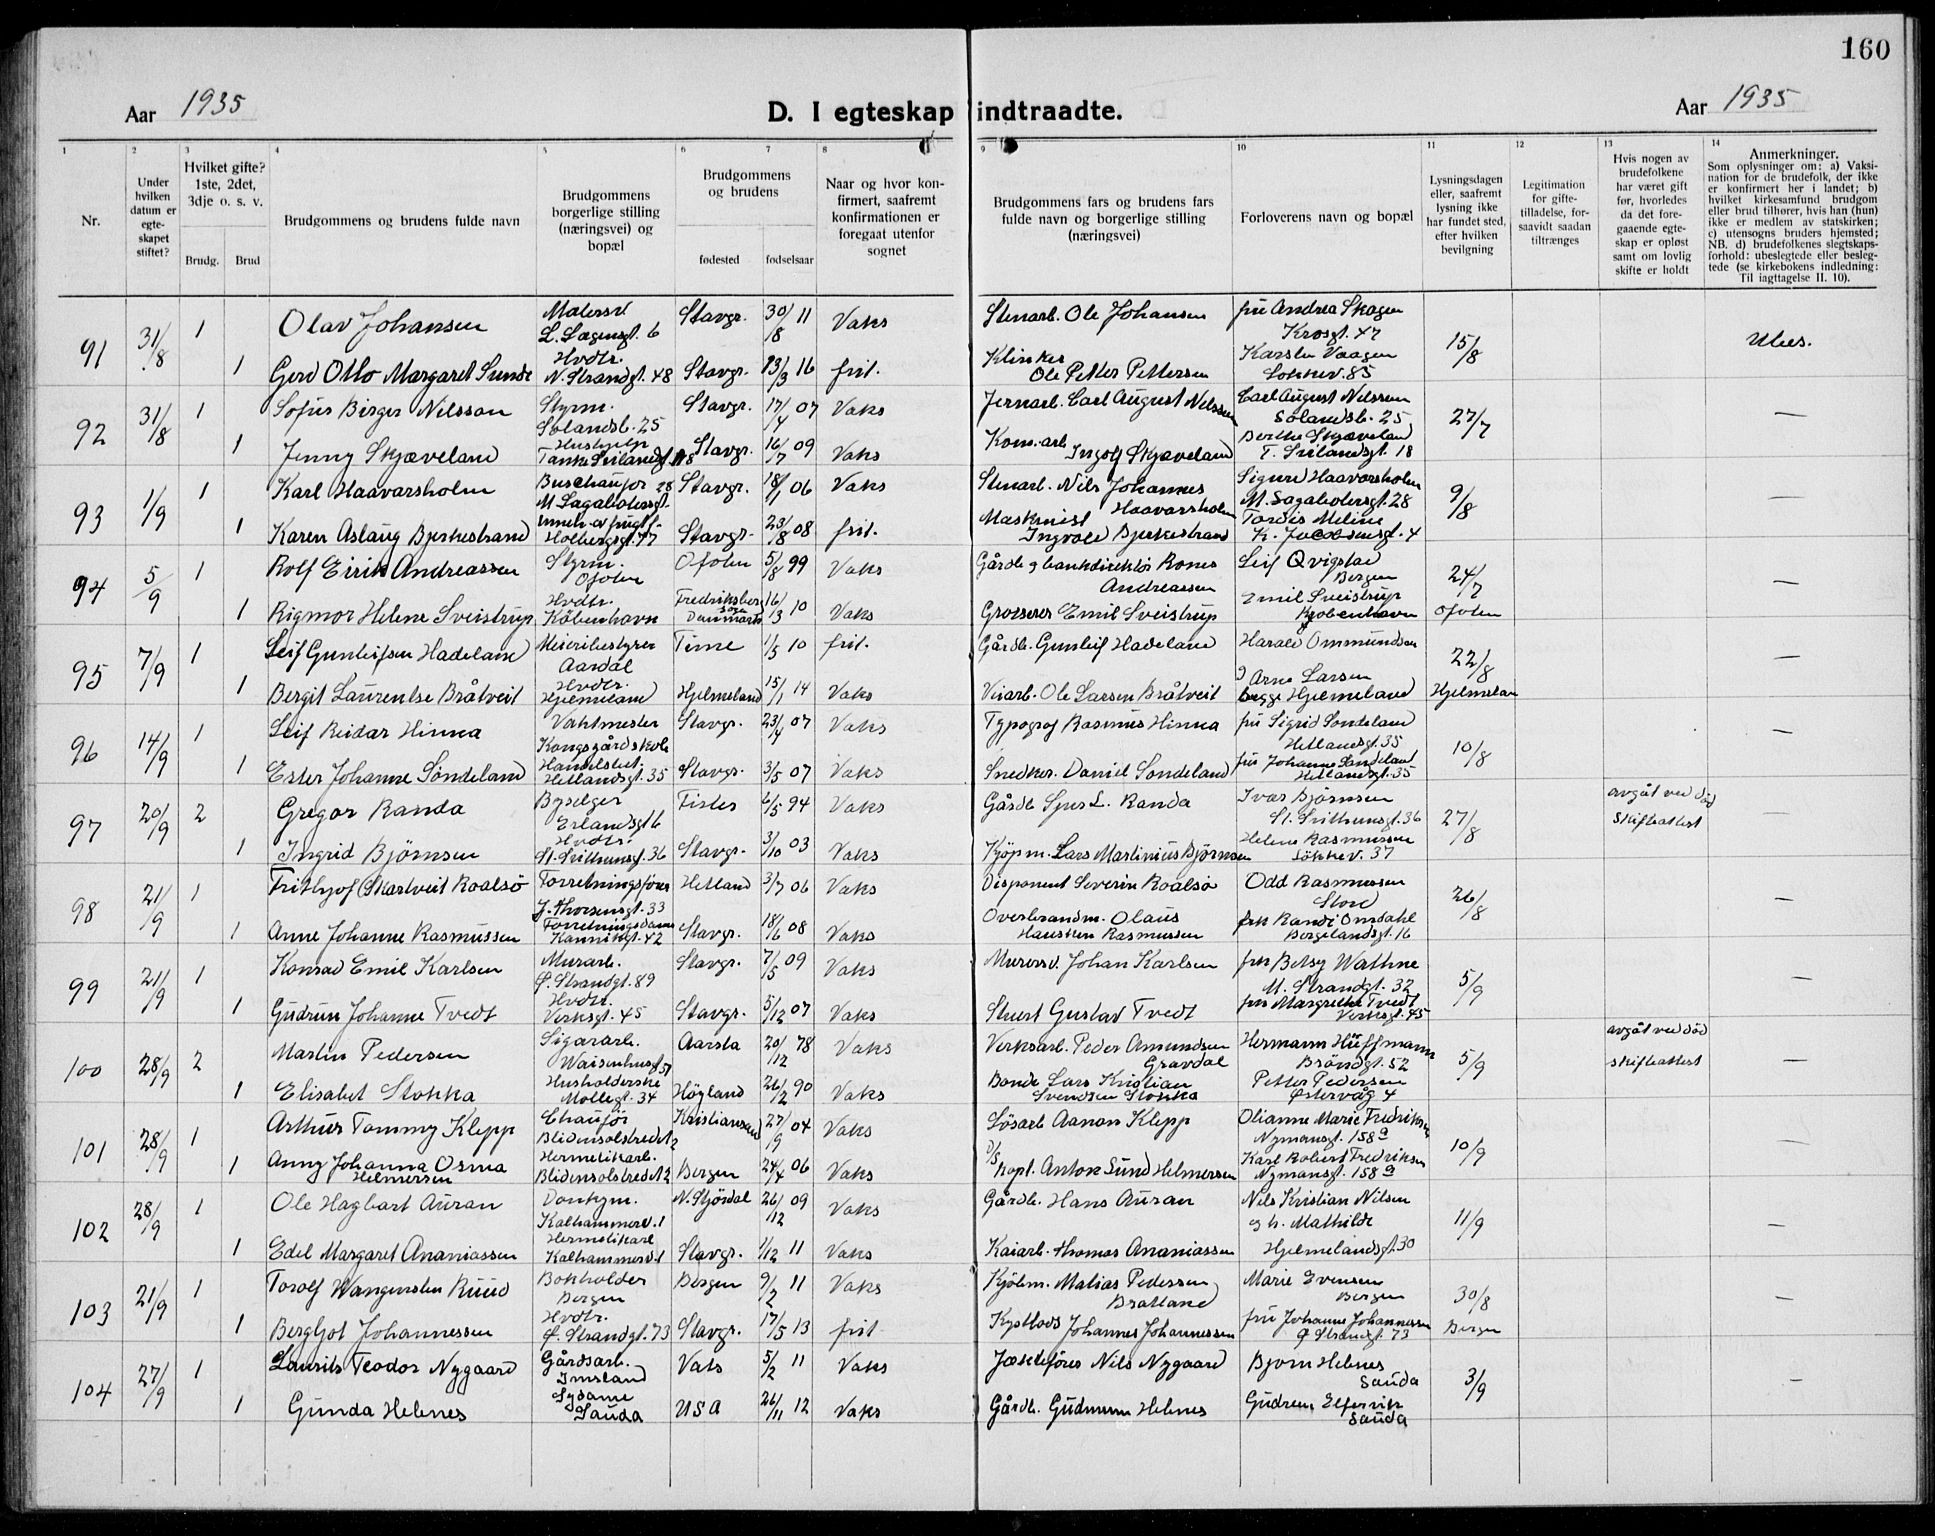 160
Aar 1935
D. I egteskap indtraadte.
Aar 1935
1 2 3 4 5 6 7 8 9 10 11 12 13 14
Nr.
Under hvilken datum er egteskapet stiftet?
Hvilket gifte? 1ste, 2det, 3dje o. s. v.
Brudg. Brud
Brudgommens og brudens fulde navn
Brudgommens borgerlige stilling (næringsvei) og bopæl
Brudgommens og brudens
fødested fødselsaar
Naar og hvor konfirmert, saafremt konfirmationen er foregaat utenfor sognet
Brudgommens fars og brudens fars fulde navn og borgerlige stilling (næringsvei)
Forloverens navn og bopæl
Lysningsdagen eller, saafremt lysning ikke har fundet sted, efter hvilken bevilgning
Legitimation for giftetilladelse, forsaavidt saadan tiltrænges
Hvis nogen av brudefolkene har været gift før, hvorledes da det foregaaende egteskap er opløst samt om lovlig skifte er holdt
Anmerkninger.
Som oplysninger om: a) Vaksination for de brudefolk, der ikke er konfirmert her i landet; b) hvilket kirkesamfund brudgom eller brud tilhører, hvis han (hun) ikke er medlem av statskirken; c) utensogns bruders hjemsted; NB. d) brudefolkenes slegtskapsforhold: ubeslegtede eller beslegtede (se kirkebokens indledning: Til iagttagelse II. 10).
91 31/8 1 Olav Johansen Malersv. L. Sagensgt. 6 Stavgr. 30/8 11 Vaks Stenarb. Ole Johansen fru Andrea Skagen Krosgt. 47 15/8 Ubes.
1 Gerd Otto Margaret Sunde Hvdtr. N. Strandgt. 48 Stavgr. 13/3 16 frit. Klinker Ole Petter Pettersen Karsten Vaagen Lokkev. 85
92 31/8 1 Sofus Birger Nilsson Styrm. Sölandsb. 25 Stavgr. 17/4 07 Vaks Jernarb. Carl August Nilssen Carl August Nilssen Sölandsb. 25 27/7 —
1 Jenny Skjæveland Hushjelp Stavgr. 16/7 09 Vaks Kom. arb. Ingolf Skjæveland Berthe Skjæveland T. Svilandsgt. 18
93 1/9 1 Karl Haavarsholm Buschauför Stavgr. 18/1 06 Vaks Stenarb. Nils Johannes Haavarsholm Sigurd Haavarsholm 9/8 —
1 Karen Aslaug Bjerkestrand Holbergsgt. 47 Stavgr. 23/8 08 frit. Maskinist Ingvald Bjerkestrand Tordis Meline K. Jacobsensgt. 4
94 5/9 1 Rolf Eirik Andreassen Styrm. Ofoten Ofoten 5/8 99 Vaks Gårdb. og bankdirektör Andreassen Leif Qvigstad Bergen 24/7 —
1 Rigmor Helene Sveistrup Hvdtr. Köbenhavn Danmark 16/3 10 Vaks Grosserer Emil Sveistrup Emil Sveistrup Kjøbenhavn Ofoten
95 7/9 1 Leif Gunleifsen Hadeland Meieribestyrer Aardal Time 1/5 10 frit. Gårdb. Gunleif Hadeland Harald Ommundsen 22/8 —
1 Bergit Laurentse Bråtveit Hvdtr. Hjelmeland Hjelmeland 15/1 14 Vaks Veiarb. Ole Larsen Bråtveit og Arne Larsen begge Hjelmeland Hjelmelan
96 14/9 1 Leif Reidar Hinna Vaktmester Kongsgård skole Stavgr. 23/4 07 Vaks Typograf Rasmus Hinna fru Sigrid Söndeland Hetlandsgt. 35 10/8 —
1 Ester Johanne Söndeland Handelsbet. Hetlandsgt. 35 Stavgr. 3/5 07 Vaks Snedker. Daniel Söndeland fru Johanne Söndeland Hetlandsgt. 35
97 20/9 2 Gregar Randa Byselger Erlandsgt 6 Fister 6/5 94 Vaks Gårdb. L. Randa Ivar Bjørnsen St. Svithunsgt. 36 27/8 avgåt ved död skifteattest —
1 Ingrid Bjørnsen Hvdtr. St. Svithunsgt. 36 Stavgr. 3/10 03 Vaks Kjöpm. Lars Martinius Björnsen Helene Rasmussen Lökkev. 37
98 21/9 1 Frithjof Skartveit Roalsö Forretningsförer J. Thorsensgt. 33 Hetland 3/7 06 Vaks Disponent Severin Roalsö Odd Rasmussen Stord 26/8 —
1 Anne Johanne Rasmussen Forretningsdame Kannikgt. 42 Stavgr. 18/6 08 Vaks Overbrandm. Olaus Hausken Rasmussen frk Randi Omdahl Bergelandsgt. 16
99 21/9 1 Konrad Emil Karlsen Murarb. Ø. Strandgt. 89 Stavgr. 7/5 09 Vaks Murersv. Johan Karlsen frk Betsy Wathne M. Strandgt. 32 5/9 —
1 Gudrun Johanne Tvedt Hvdtr. Verksgt. 45 Stavgr. 5/12 07 Vaks Stuert Gustav Tvedt fru Margrethe Tvedt Verksgt. 45
100 28/9 2 Martin Pedersen Sigararb. Aarsta 20/12 78 Vaks Verksarb. Peder Amundsen Gravdal Hermann Hüffmann Bröndgt. 52 5/9 avgåt ved död skifteattest —
1 Elisabet Stokka Husholderske Möllegt. 34 Höyland 26/2 90 Vaks Bonde Lars Kristian Svendsen Stokka Petter Pedersen Østervåg 4
101 28/9 1 Arthur Tommy Klepp Chauför Blidensolstredet 2 Kristiansand 27/9 04 Vaks Lösarb Aanon Klepp Olianne Marie Fredriksen Nymansgt. 158a 10/9 —
1 Anny Johanna Osma Helmersen Hermetikarb. Blidensolstredet 2 Bergen 24/4 06 Vaks D/S kapt. Anton Sund Helmersen Karl Robert Fredriksen Nymansgt. 158a
102 28/9 1 Ole Hagbart Auran Donkym. Kalhammerv. 1 N. Stjördal 26/12 09 Vaks Gårdb. Hans Auran Nils Kristian Nilsen og h. Mathilde Hjelmelandsgt. 30 11/9 —
1 Edel Margaret Ananiassen Hermetikarb Kalhammerv. 1 Stavgr. 1/12 11 Vaks Kaiarb. Thomas Ananiassen
103 21/9 1 Torolf Wangensten Ruud Bokholder Bergen Bergen 9/2 11 Vaks Kjöbm. Matias Pedersen Bratland Marie Evensen Bergen 30/8 —
1 Bergljot Johannessen Hvdtr. Ø. Strandgt. 73 Stavgr. 17/5 13 frit Kystlods Johannes Johannessen fru Johanne Johannessen Ø Strandgt. 73 Bergen
104 27/9 1 Laurits Teodor Nygaard Gårdsarb. Imsland Vats 5/2 11 Vaks Jæktefører Nils Nygaard Bjorn Helnes Sauda 3/9 —
1 Gunda Helenes Sydame Sauda USA 26/11 12 Vaks Gårdb. Gudmunn Helenes Gudrun Sauda